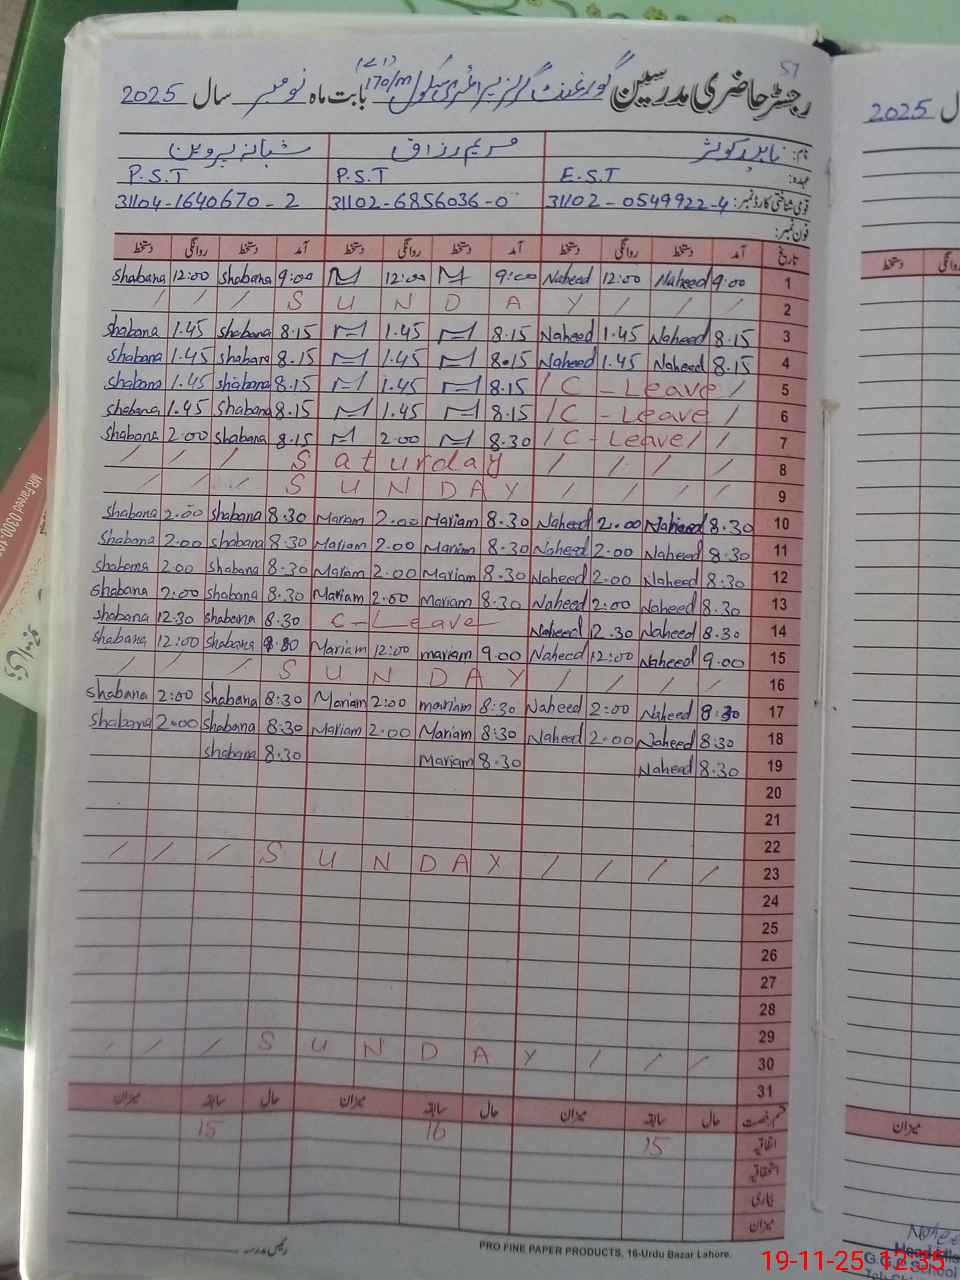 57
رجسٹر حاضری مدرسین گورنمنٹ گرلز پرائمری سکول 170/m بابت ماہ نومبر سال 2025
نام: ناہید کوثر مریم رزاق شبانہ پروین
عہدہ: E.S.T P.S.T P.S.T
قومی شناختی کارڈ نمبر: 31102-0549922-4 31102-6856036-0 31104-1640670-2
فون نمبر:
تاریخ آمد دستخط روانگی دستخط آمد دستخط روانگی دستخط آمد دستخط روانگی دستخط
Shabana 12:00 Shabana 9:00 M 12:00 M 9:00 Naheed 12:00 Naheed 9:00 1
/ / / S U N D A Y / / / 2
Shabana 1.45 Shabana 8.15 M 1.45 M 8.15 Naheed 1.45 Naheed 8.15 3
Shabana 1.45 Shabana 8.15 M 1.45 M 8.15 Naheed 1.45 Naheed 8.15 4
Shabana 1.45 Shabana 8.15 M 1.45 M 8.15 / C - Leave / 5
Shabana 1.45 Shabana 8.15 M 1.45 M 8.15 / C - Leave / 6
Shabana 2.00 Shabana 8.15 M 2.00 M 8.30 / C - Leave / / 7
/ / / S a t u r d a y / / / / 8
/ / / S U N D A Y / / / / 9
Shabana 2.00 Shabana 8.30 Mariam 2.00 Mariam 8.30 Naheed 2.00 Naheed 8.30 10
Shabana 2.00 Shabana 8.30 Mariam 2.00 Mariam 8.30 Naheed 2.00 Naheed 8.30 11
Shabana 2.00 Shabana 8.30 Mariam 2.00 Mariam 8.30 Naheed 2.00 Naheed 8.30 12
Shabana 2:00 Shabana 8.30 Mariam 2.00 Mariam 8.30 Naheed 2:00 Naheed 8.30 13
Shabana 12.30 Shabana 8.30 C-Leave Naheed 12.30 Naheed 8.30 14
Shabana 12:00 Shabana Mariam 12:00 mariam 9.00 Naheed 12:00 Naheed 9.00 15
/ / / S U N D A Y / / / / 16
Shabana 2:00 Shabana 8:30 Mariam 2:00 mariam 8:30 Naheed 2:00 Naheed 8:30 17
Shabana 2.00 Shabana 8:30 Mariam 2.00 Mariam 8:30 Naheed 2.00 Naheed 8:30 18
Shabana 8.30 Mariam 8.30 Naheed 8.30 19
20
21
22
/ / / S U N D A Y / / / / 23
24
25
26
27
28
29
/ / / S U N D A Y / / / 30
31
حال سابقہ میزان حال سابقہ میزان حال سابقہ میزان
اتفاقیہ 15 16 15
استحقاقیہ
بیماری
میزان
رئیس مدرسہ
PRO FINE PAPER PRODUCTS, 16-Urdu Bazar Lahore.
2025
دستخط
میزان
MR.Fareed 0300-
19-11-25 12:35